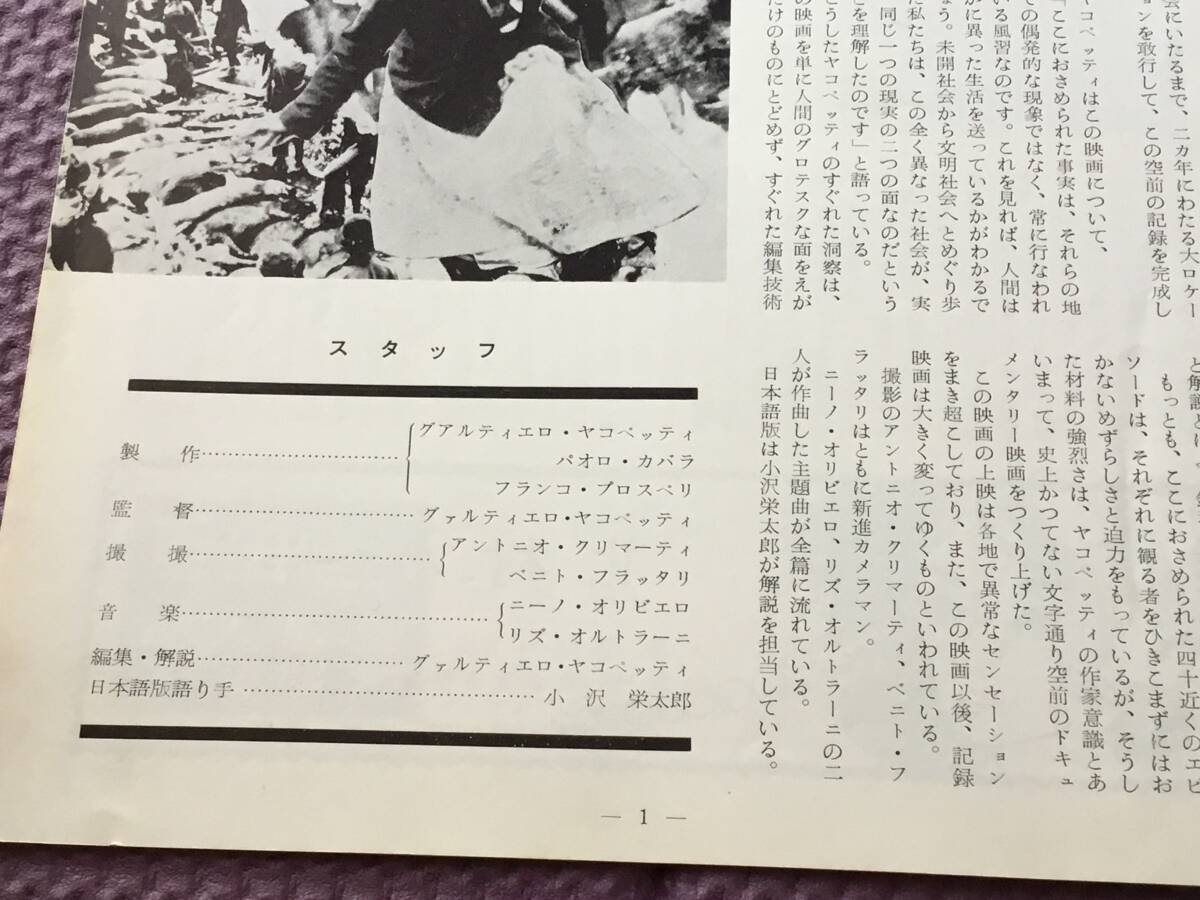 会にいたるまで、二カ年にわたる大ロケー
ションを敢行して、この空前の記録を完成し
ヤコペッティはこの映画について、
「ここにおさめられた事実は、それらの地
での偶発的な現象ではなく、常に行なわれ
いる風習なのです。これを見れば、人間は
かに異った生活を送っているかがわかるで
ょう。未開社会から文明社会へとめぐり歩
た私たちは、この全く異なった社会が、実
同じ一つの現実の二つの面なのだという
とを理解したのです」と語っている。
こうしたヤコペッティのすぐれた洞察は、
の映画を単に人間のグロテスクな面をえが
だけのものにとどめず、すぐれた編集技術
もっとも、ここにおさめられた四十近くのエピ
ソードは、それぞれに観る者をひきこまずにはお
かないめずらしさと迫力をもっているが、そうし
た材料の強烈さは、ヤコペッティの作家意識とあ
いまって、史上かつてない文字通り空前のドキュ
メンタリー映画をつくり上げた。
この映画の上映は各地で異常なセンセーション
をまき超こしており、また、この映画以後、記録
映画は大きく変ってゆくものといわれている。
撮影のアントニオ・クリマーティ、ベニト・フ
ラッタリはともに新進カメラマン。
ニーノ・オリビエロ、リズ・オルトラーニの二
人が作曲した主題曲が全篇に流れている。
日本語版は小沢栄太郎が解説を担当している。
スタッフ
製作……………………グアルティエロ・ヤコペッティ
パオロ・カバラ
フランコ・プロスペリ
監督……………………グァルティエロ・ヤコペッティ
撮撮……………………アントニオ・クリマーティ
ベニト・フラッタリ
音楽……………………ニーノ・オリビエロ
リズ・オルトラーニ
編集・解説……………………グァルティエロ・ヤコペッティ
日本語版語り手……………………小沢栄太郎
— 1 —